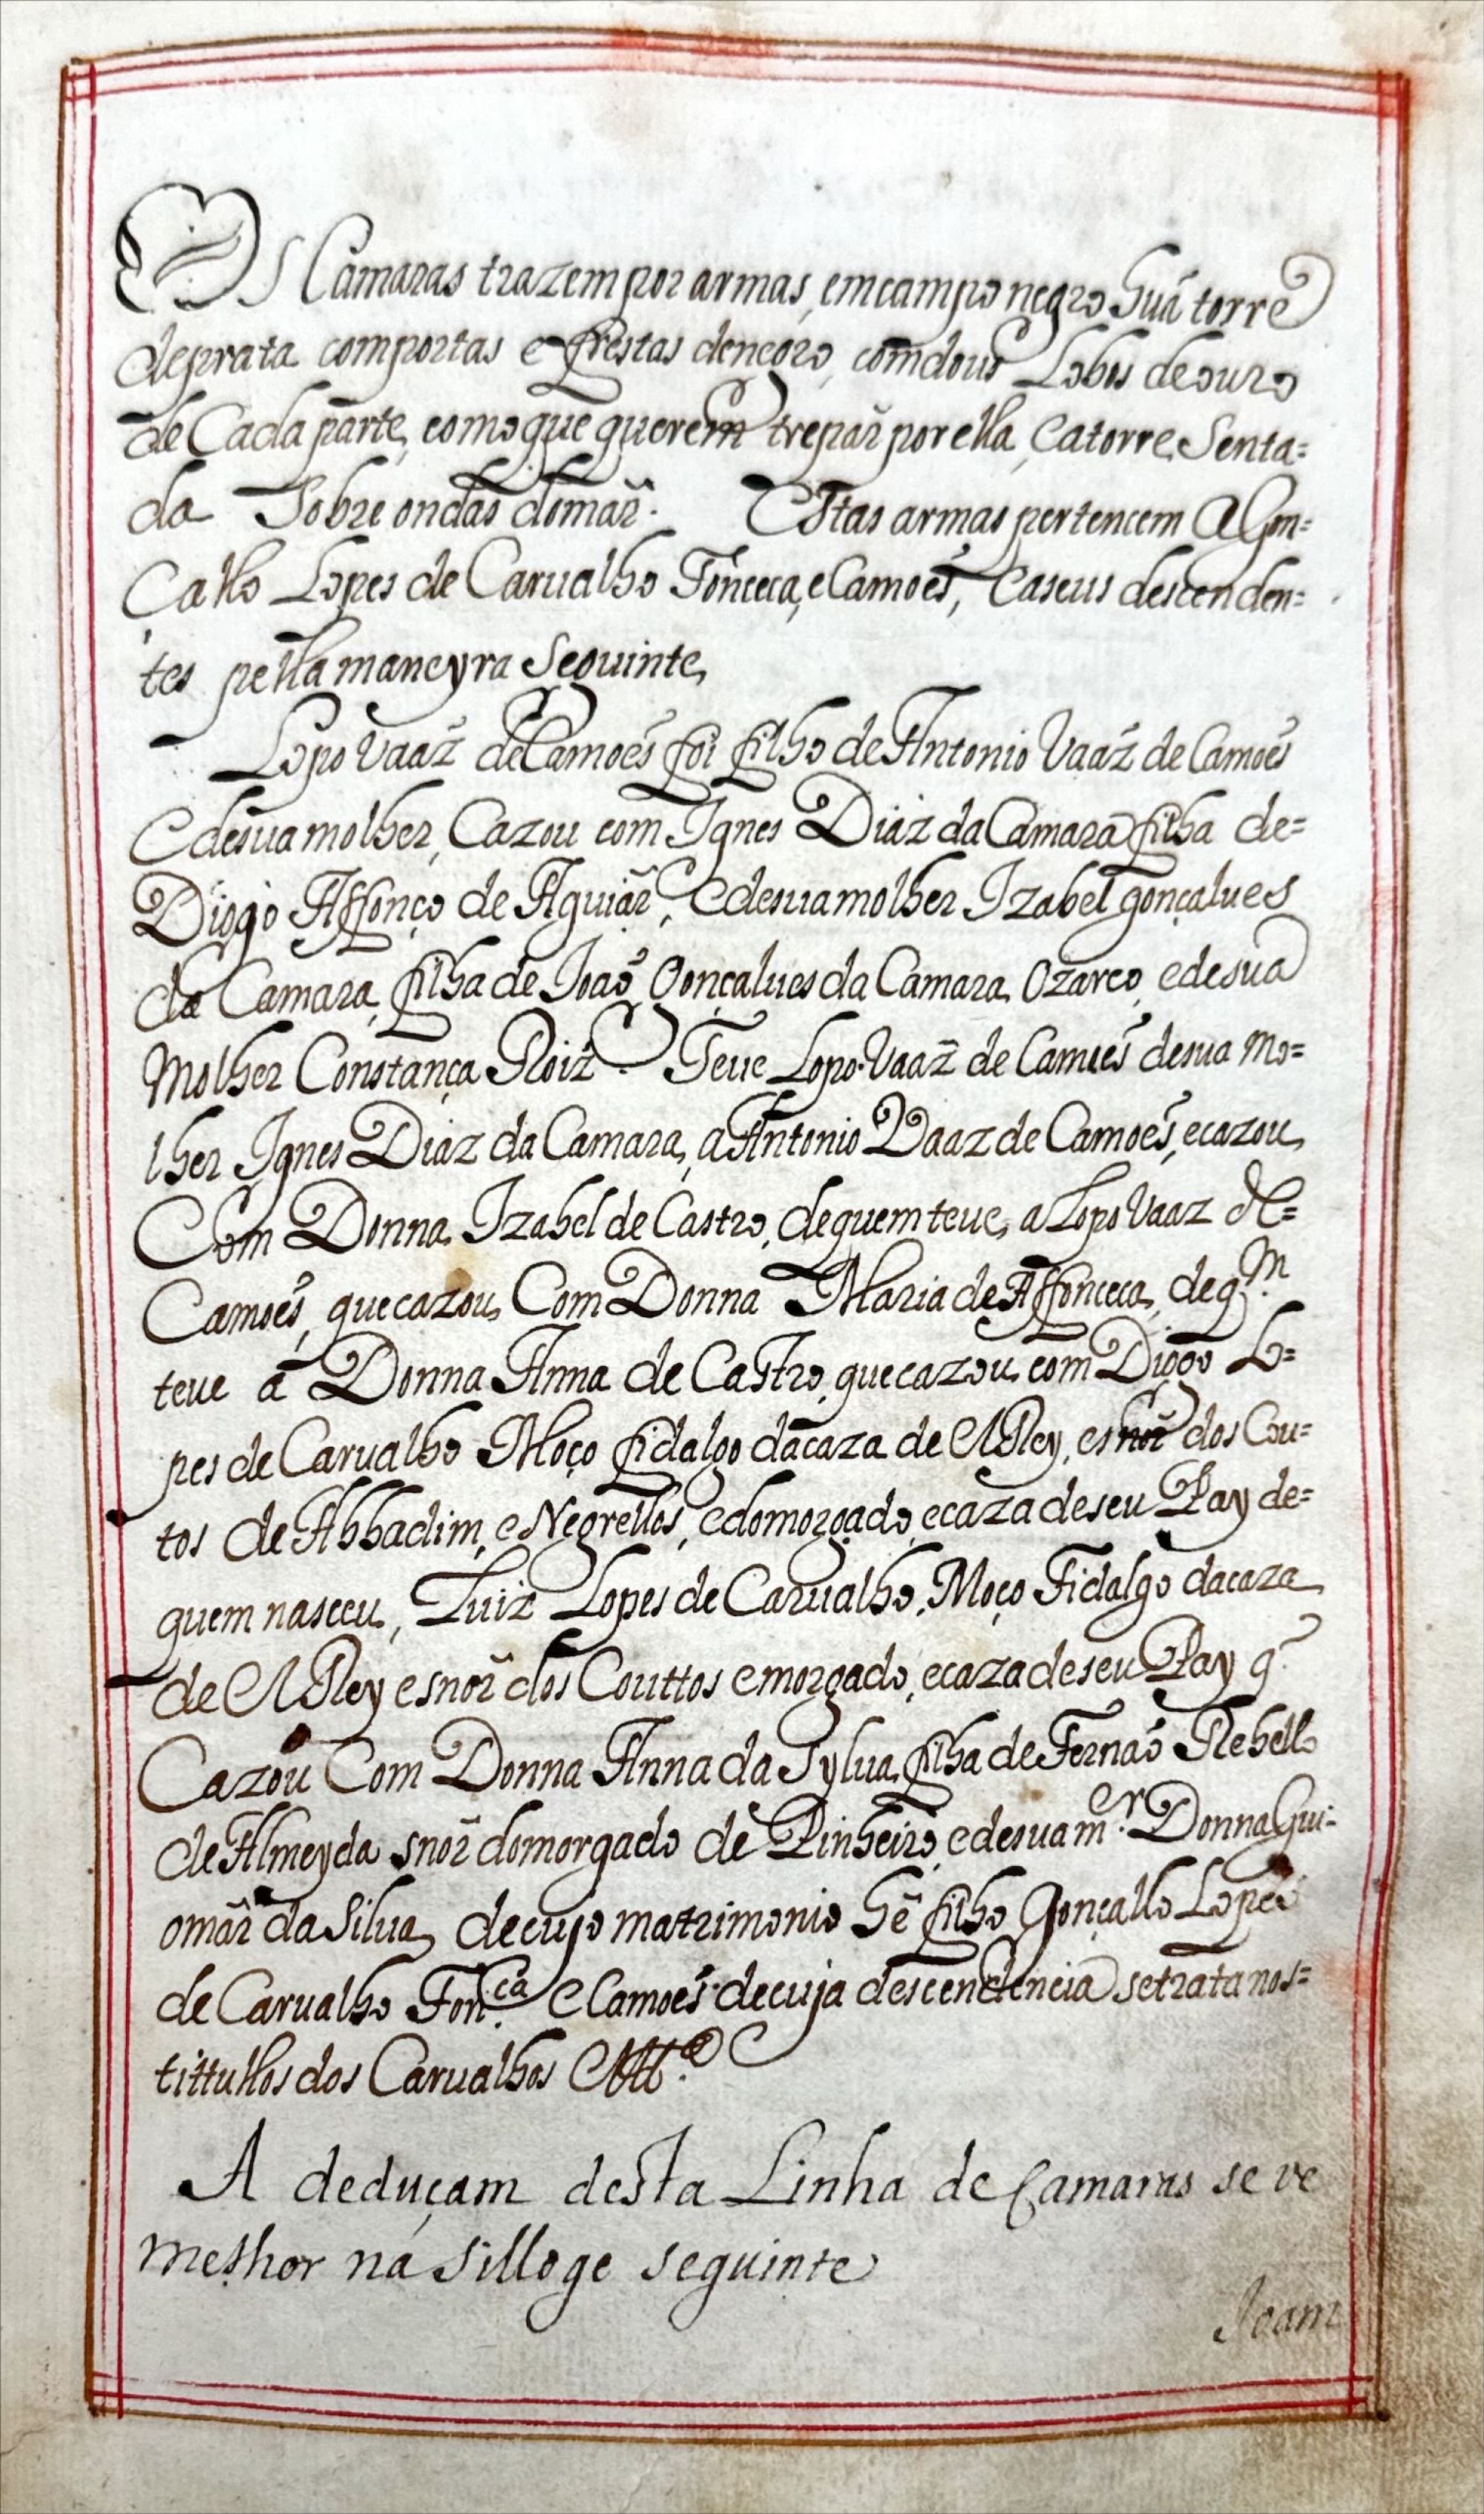 OS Camaras trazem por armas, em campo negro hũa torre
de prata com portas e frestas de negro, com dous Lobos de ouro
de Cada parte, como que querem trepar por ella, e a torre Senta=
da Sobre ondas do mar. Estas armas pertencem a Gon=
Çallo Lopes de Carualho Fonceca, e Camoẽs, e a seus descenden=
tes pella maneyra Seguinte,
Lopo Vaaz de Camoẽs foi filho de Antonio Vaaz de Camoẽs
e de sua molher, Cazou com Ignes Diaz da Camara filha de=
Diogo Affonço de Aguiar, e de sua molher Izabel gonçalues
da Camara, filha de Joaõ Gonçalues da Camara Ozarco, e de sua
Molher Constança Roiz. Teue Lopo Vaaz de Camoẽs de sua mo=
lher Ignes Diaz da Camara, a Antonio Vaaz de Camoẽs, e cazou
Com Donna Izabel de Castro, de quem teue, a Lopo Vaaz de=
Camoẽs, que cazou Com Donna Maria de Affonceca, de q.m
teue a Donna Anna de Castro, que cazou com Diogo Lo=
pes de Carualho Moço fidalgo da caza de ElRey, e snõr dos Cou=
tos de Abbadim, e Negrellos, e do morgado, e caza de seu Pay de=
quem nasceu, Luiz Lopes de Carualho, Moço Fidalgo da caza
de ElRey e snõr dos Couttos e morgado, e caza de seu Pay q̃
Cazou Com Donna Anna da Sylua filha de Fernaõ Rebello
de Almeyda snõr do morgado de Pinheiro, e de sua m.er Donna Gui=
omar da Silua, de cujo matrimonio hé filho Gonçallo Lopes
de Carualho Fon.ca e Camoẽs de cuja descendencia se trata nos=
tittullos dos Carualhos
A deduçam desta Linha de Camaras se ve
melhor na Silloge seguinte
Joam